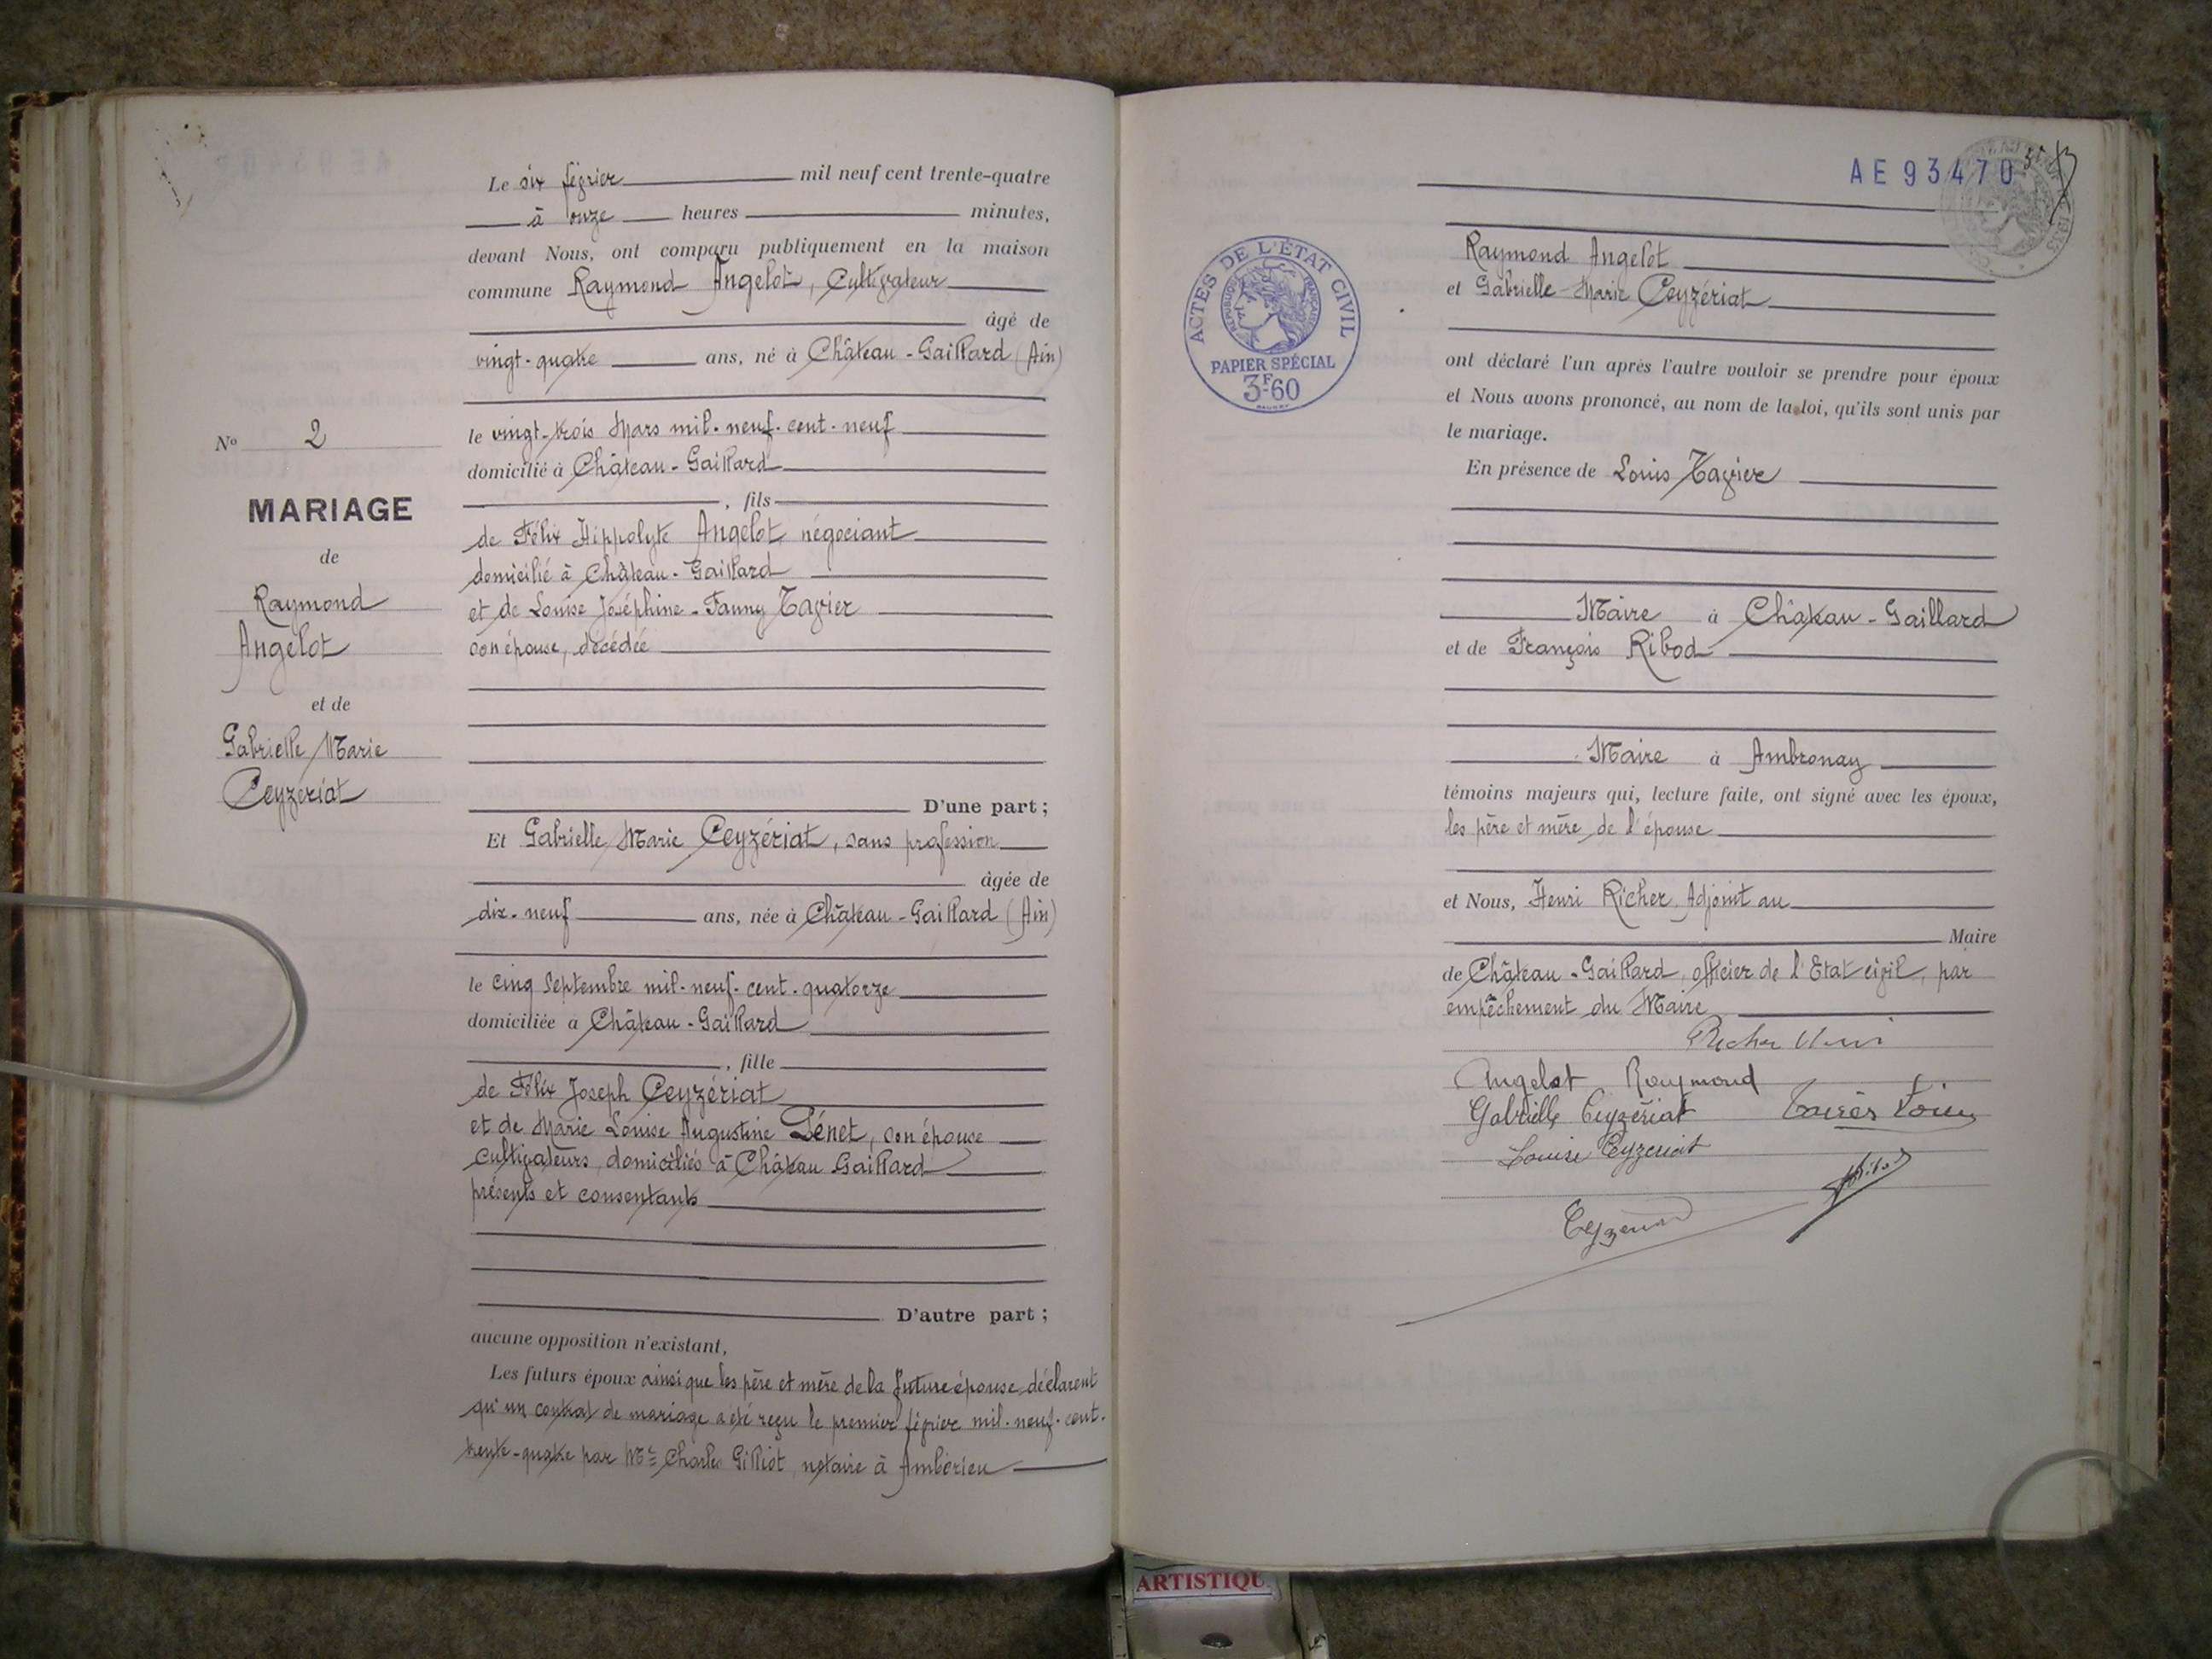 N° 2
MARIAGE
de
Raymond
Angelot
et de
Gabrielle Marie
Ceyzériat
Le six février mil neuf cent trente-quatre
à onze heures minutes,
devant Nous, ont comparu publiquement en la maison
commune Raymond Angelot, Cultivateur
âgé de
vingt-quatre ans, né à Château-Gaillard (Ain)
le vingt-trois Mars mil-neuf-cent-neuf
domicilié à Château-Gaillard
, fils
de Félix Hippolyte Angelot, négociant
domicilié à Château-Gaillard
et de Louise Joséphine-Fanny Tavier
son épouse, décédée
D'une part;
Et Gabrielle Marie Ceyzériat, sans profession
âgée de
dix-neuf ans, née à Château-Gaillard (Ain)
le cinq Septembre mil-neuf-cent-quatorze
domiciliée à Château-Gaillard
, fille
de Félix Joseph Ceyzériat
et de Marie Louise Augustine Génet, son épouse
cultivateurs, domiciliés à Château Gaillard
présents et consentants
D'autre part;
aucune opposition n'existant,
Les futurs époux ainsi que les père et mère de la future épouse déclarent
qu'un contrat de mariage a été reçu le premier février mil-neuf-cent-
trente-quatre par Me Charles Gilliot, notaire à Ambérieu
AE 93470
ACTES DE L'ÉTAT CIVIL
RÉPUBLIQUE FRANÇAISE
PAPIER SPÉCIAL
3F.60
Raymond Angelot
et Gabrielle-Marie Ceyzériat
ont déclaré l'un après l'autre vouloir se prendre pour époux
et Nous avons prononcé, au nom de la loi, qu'ils sont unis par
le mariage.
En présence de Louis Tavier
Maire à Château-Gaillard
et de François Ribod
Maire à Ambronay
témoins majeurs qui, lecture faite, ont signé avec les époux,
les père et mère de l'épouse
et Nous, Henri Richer, Adjoint au
Maire
de Château-Gaillard, officier de l'Etat civil, par
empêchement du Maire
Richer Henri
Angelot Raymond
Gabrielle Ceyzériat
Louise Ceyzeriat
Ribod
Ceyzeriat
ARTISTIQU